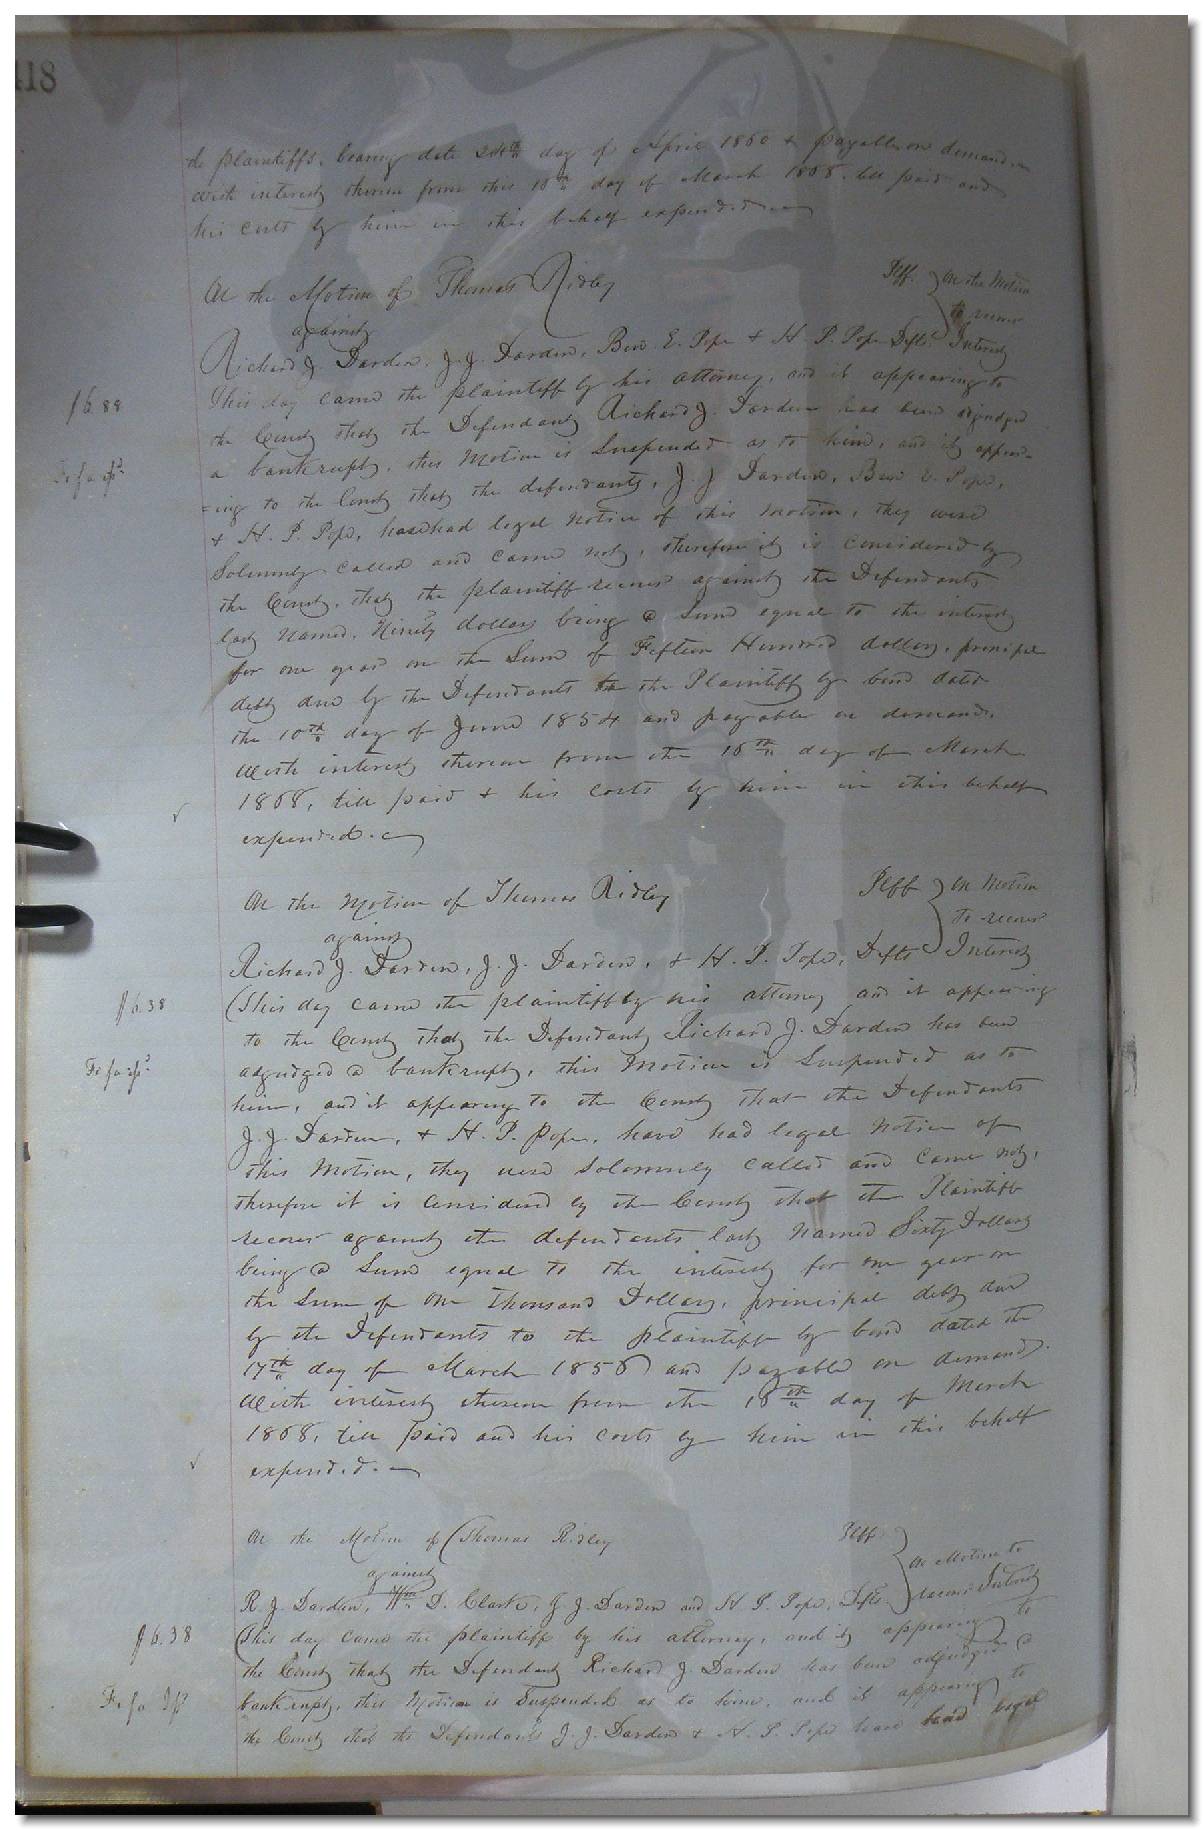 418
the plaintiffs, bearing date 24th day of April 1860 & payable on demand
with interest thereon from this 18th day of March 1868. till paid and
his costs by him in this behalf expended.
On the Motion of Thomas Ridley Plff. On the Motion
against to recover
Richard J. Darden, J. J. Darden, Ben E. Pope & H. P. Pope Defts Interest
This day came the plaintiff by his attorney, and it appearing to
$6.88
the Court that the Defendant Richard J. Darden has been adjudged
a bankrupt, this Motion is Suspended as to him, and it appear-
=ing to the Court that the defendants, J. J Darden, Ben E. Pope,
& H. P. Pope, have had legal notice of this motion, they were
Solemnly called and came not, therefore it is considered by
the Court, that the plaintiff recover against the Defendants
last Named, Ninety dollars being a Sum equal to the interest
for one year on the Sum of Fifteen Hundred dollars, principal
debt due by the Defendants to the Plaintiff by bond dated
the 10th day of June 1854 and payable on demand.
With interest thereon from the 18th day of March
1868, till paid & his costs by him in this behalf
expended.
On the Motion of Thomas Ridley Plff On Motion
against to recover
Richard J. Darden, J. J. Darden, & H. P. Pope, Defts Interest
$6.38
This day came the plaintiff by his attorney and it appearing
to the Court that the Defendant Richard J. Darden has been
adjudged a bankrupt, this Motion is Suspended as to
him, and it appearing to the Court that the Defendants
J. J. Darden, & H. P. Pope, have had legal notice of
this Motion, they were Solemnly called and came not,
therefore it is considered by the Court that the Plaintiff
recover against the defendants last Named Sixty Dollars
being a Sum equal to the interest for one year on
the Sum of One Thousand Dollars, principal debt due
by the Defendants to the plaintiff by bond dated the
17th day of March 1856 and payable on demand.
With interest thereon from the 18th day of March
1868, till paid and his costs by him in this behalf
expended.
On the Motion of Thomas Ridley Plff
against On Motion to
R. J. Darden, Wm. D. Clarke, J. J. Darden and H P. Pope, Defts. recover Interest
$6.38
This day came the plaintiff by his attorney, and it appearing to
the Court that the Defendant Richard J. Darden has been adjudged a
Fi fa
bankrupt, this Motion is Suspended as to him, and it appearing to
the Court that the Defendants J. J. Darden & H. P. Pope have had legal